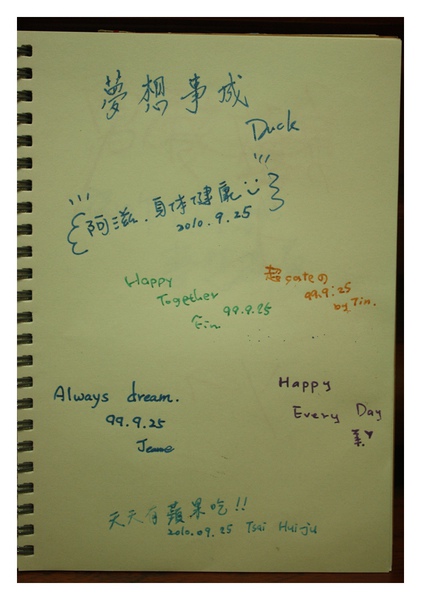 夢想事成
Duck
阿滋.身体健康
2010.9.25
Happy
Together
99.9.25
Fin
超cateの
99.9.25
by Tin.
Always dream.
99.9.25
Jene
Happy
Every Day
天天有蘋果吃!!
2010.09.25 Tsai Hui-ju